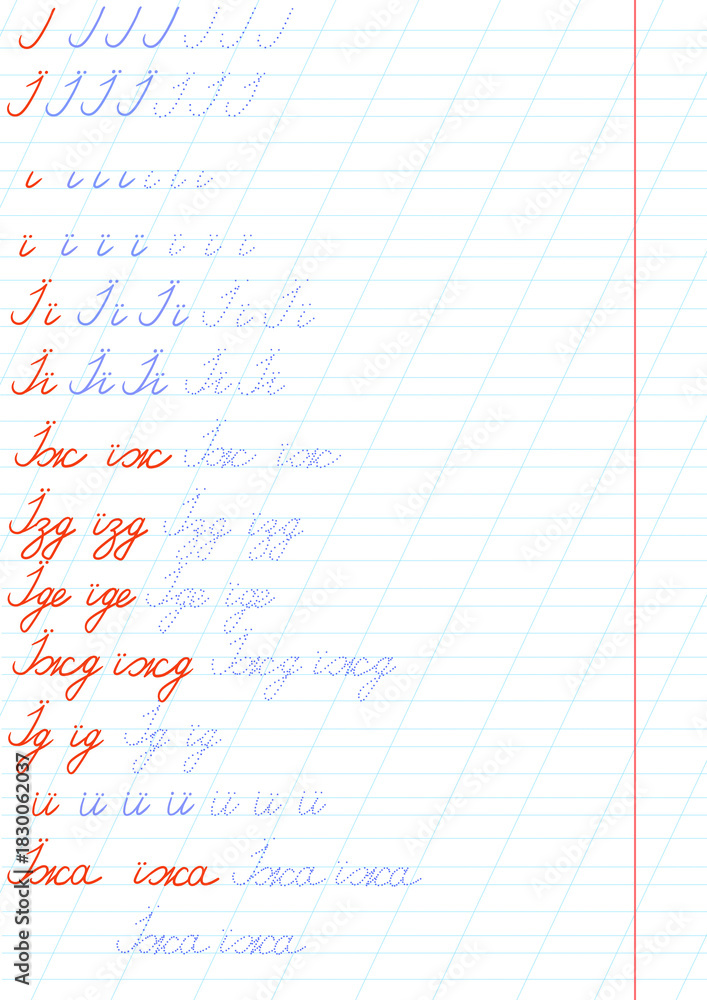 Ї Ї Ї Ї Ї Ї Ї
ї ї ї ї ї ї ї
Її Її Її Її Її
Її Її Її Її Її
Їж їж Їж їж
Їзд їзд Їзд їзд
Їде їде Їде їде
Їжд їжд Їжд їжд
Їд їд Їд їд
її її її її її її її
Їжа їжа Їжа їжа
Їжа їжа
Adobe Stock | #1830062037